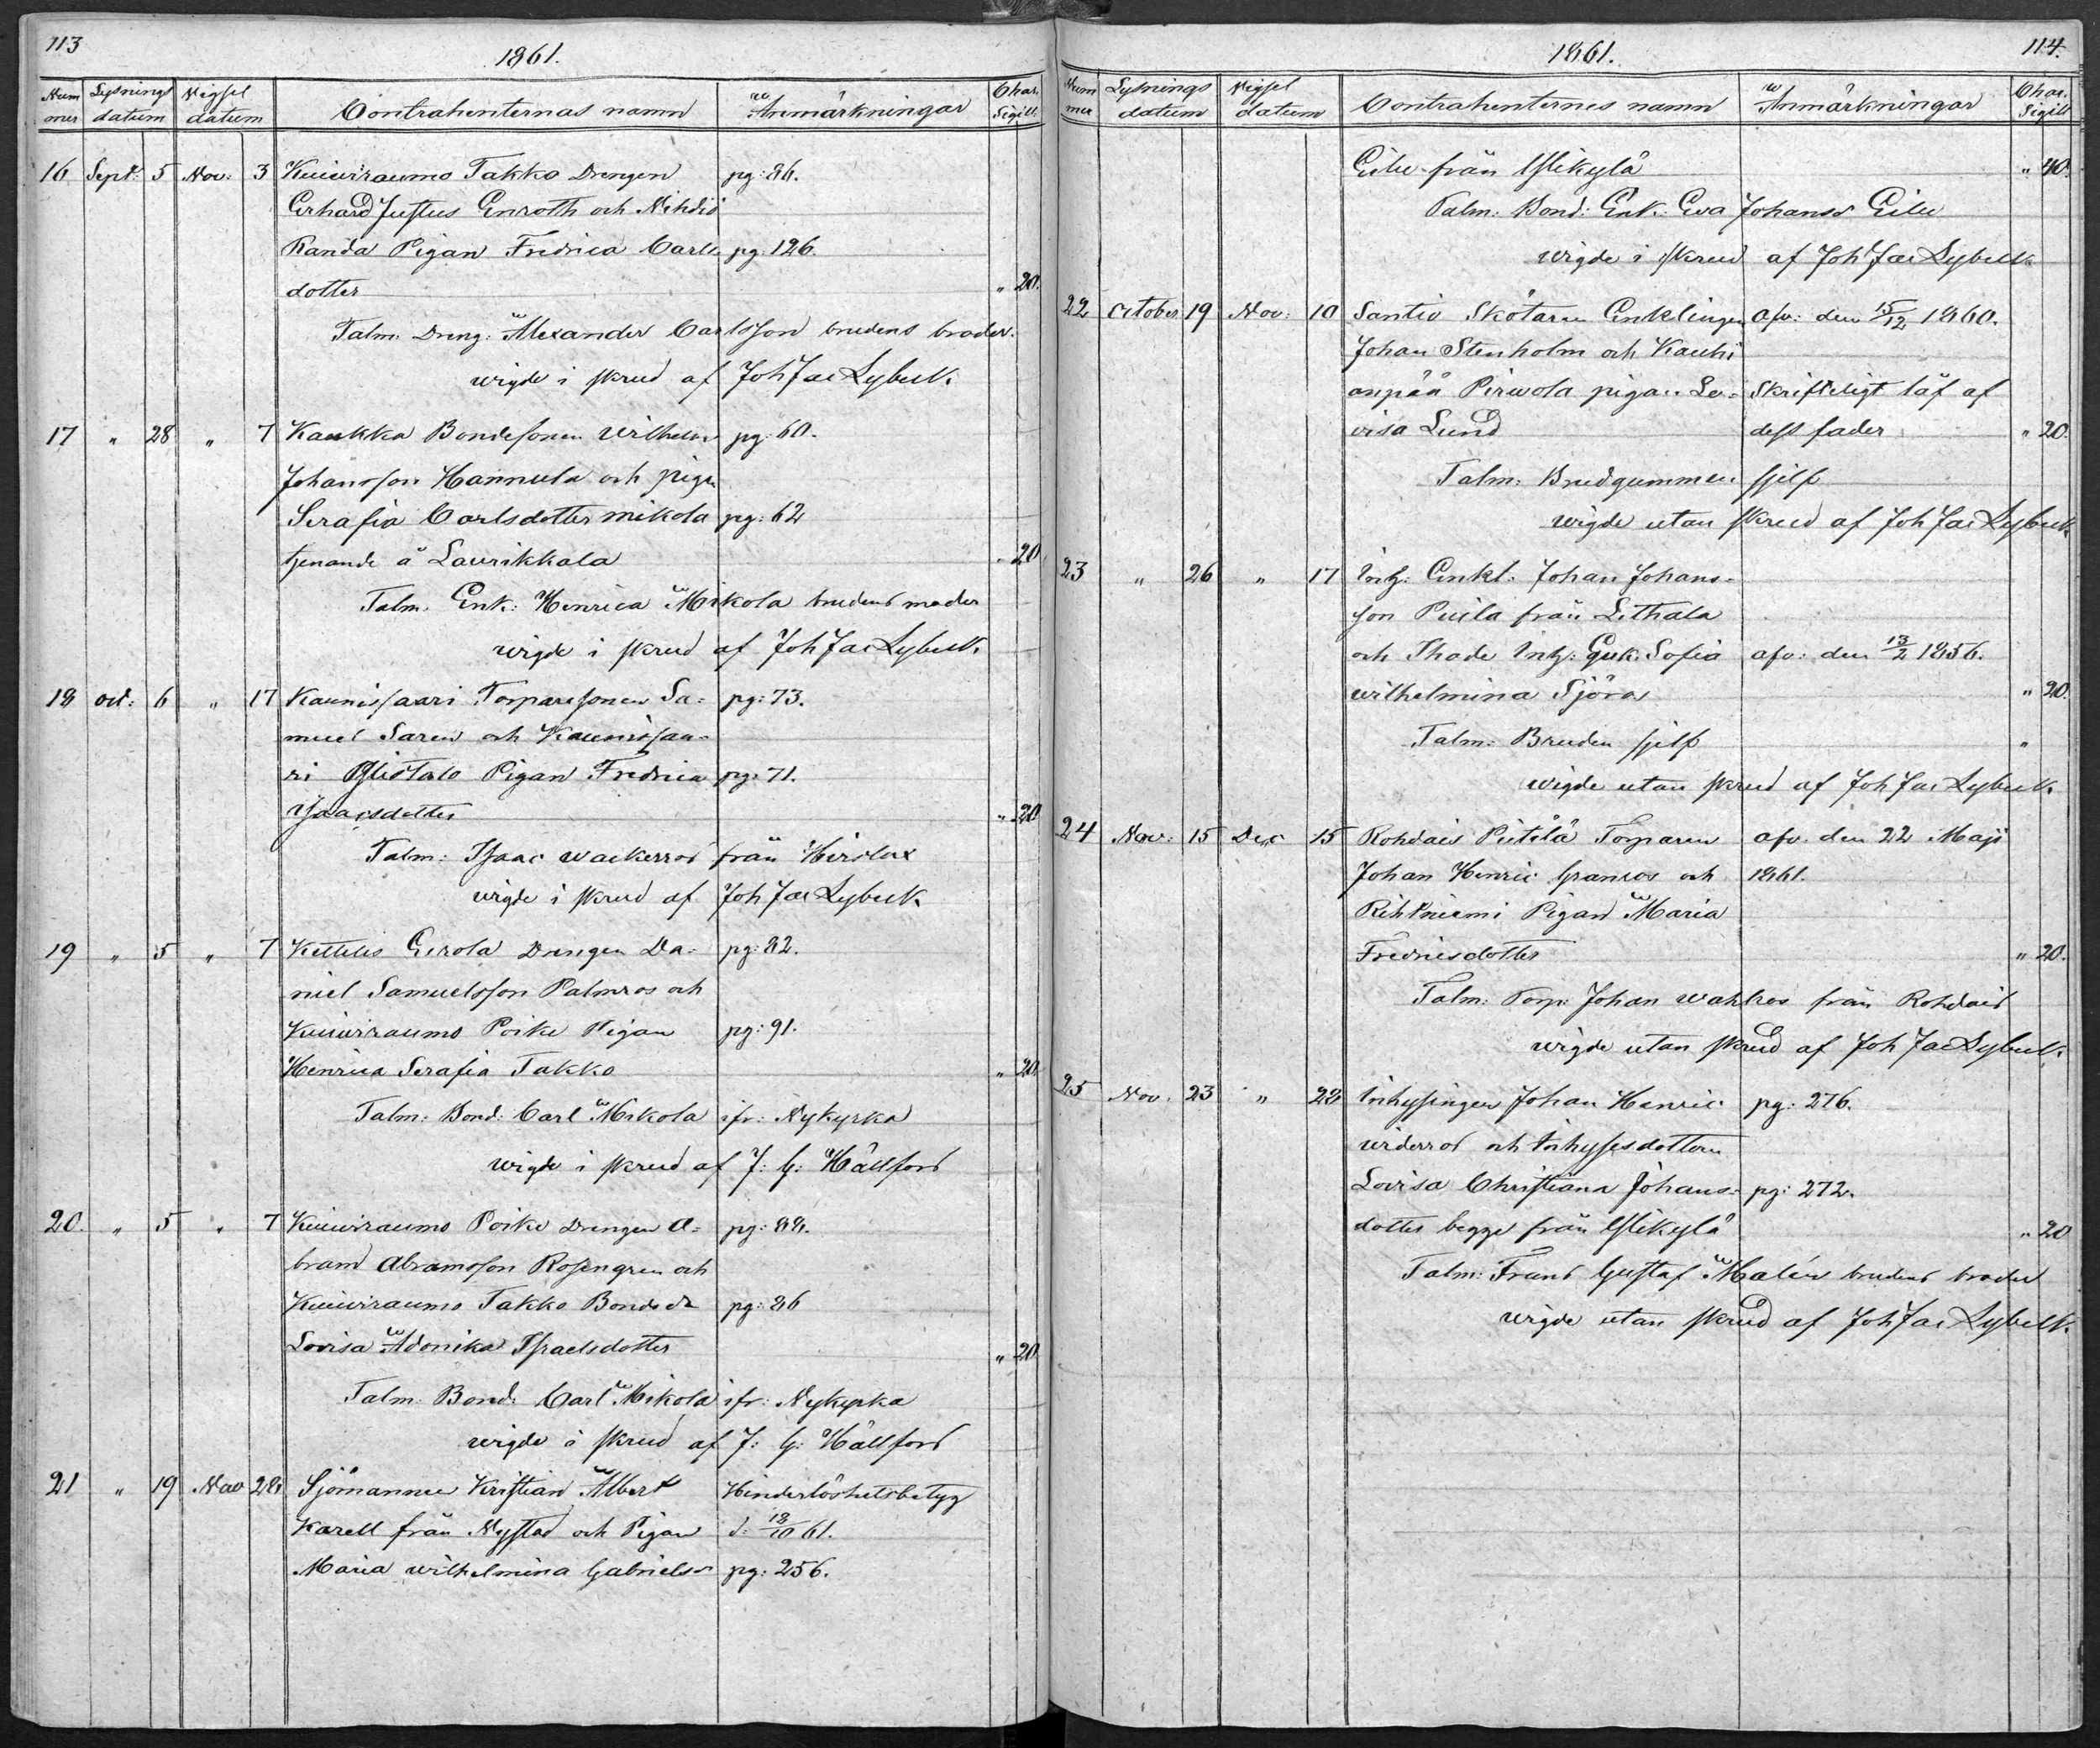 113
1861.
Num mer Lysnings datum Vigsel datum Contrahenternas namn Anmärkningar Char. Sigill.
16 Sept: 5 Nov: 3 Kuiwiraumo Takko Drengen pg: 86.
Gerhard Justus Enroth och Nihdiö
Randa Pigan Fredrica Carls- pg: 126.
dotter " 20.
Talm: Dreng: Alexander Carlsson brudens broder.
wigde i skrud af Joh Jac Lybeck.
17 " 28 " 7 Kaukka Bondesonen Wilhelm pg: 60.
Johansson Hannula och pigan
Serafia Carlsdotter Mikola pg: 62
tjenande å Laurikkala " 20
Talm. Enk: Henrica Mikola brudens moder
wigde i skrud af Joh Jac Lybeck.
18 oct: 6 " 17 Kaunissaari Torparesonen Sa- pg: 73.
muel Saren och Kaunissaa-
ri Ylistalo Pigan Fredrica pg: 71.
Isaacsdotter " 20
Talm: Isaac Wackerros från Hirslax
wigde i skrud af Joh Jac Lybeck
19 " 5 " 7 Kettelis Eerola Drengen Da- pg: 82.
niel Samuelsson Palmros och
Kuiwiraumo Poike Pigan pg: 91.
Henrica Serafia Takko " 20.
Talm: Bond: Carl Mikola ifr: Nykyrka
wigde i skrud af J: G: Hällfors
20. " 5 " 7 Kuiwiraumo Poike Drengen A- pg: 88.
bram Abramsson Rosengren och
Kuiwiraumo Takko Bonde dr pg: 86
Lovisa Adonika Israelsdotter " 20
Talm: Bond: Carl Mikola ifr: Nykyrka
wigde i skrud af J: G: Hällfors
21 " 19 Nov 28 Sjömannen Kristian Albert Hinderlöshetsbetyg
Karell från Nystad och Pigan d: 18/10 61.
Maria Wilhelmina Gabrielsdr pg: 256.
1861.
114.
Num mer Lysnings datum Vigsel datum Contrahenternes namn Anmärkningar Char. Sigill
Eilu från Ylikylä " 40.
Talm: Bond: Enk: Eva Johansdr Eilu
wigde i skrud af Joh Jac Lybeck
22 October 19 Nov: 10 Santio Skötaren Enklingen afv: den 15/12 1860.
Johan Stenholm och Kauhi
anpää Pirwola pigan Lo- Skrifteligt låf af
visa Lund dess fader " 20
Talm: Brudgummen sjelf
wigde utan skrud af Joh Jac Lybeck
23 " 26 " 17 Inh: Enkl: Johan Johans-
son Puila från Lethala
och Thode Inh: Enk: Sofia afv: den 13/2 1856.
Wilhelmina Sjöros " 20.
Talm: Bruden sjelf "
wigde utan skrud af Joh Jac Lybeck.
24 Nov: 15 Dec 15 Rohdais Pietilä Torparen afv. den 22 Maji
Johan Henric Granros och 1861.
Rihtniemi Pigan Maria
Fredricsdotter " 20.
Talm: Torp: Johan Wahlros från Rohdais
wigde utan skrud af Joh Jac Lybeck.
25 Nov. 23 " 28 Inhysingen Johan Henric pg: 276.
Widerros och Inhysesdottern
Lovisa Christiana Johans- pg: 272.
dotter begge från Ylikylä " 20
Talm: Gustaf Malén brudens broder
wigde utan skrud af Joh Jac Lybeck.